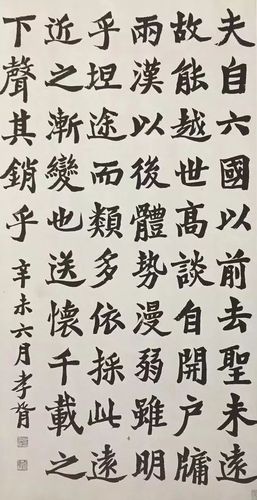 夫自六國以前去聖未遠
故能越世高談自開戶牖
兩漢以後體勢漫弱雖明
乎坦途而類多依採此遠
近之漸變也送懷千載之
下聲其銷乎
辛未六月孝胥